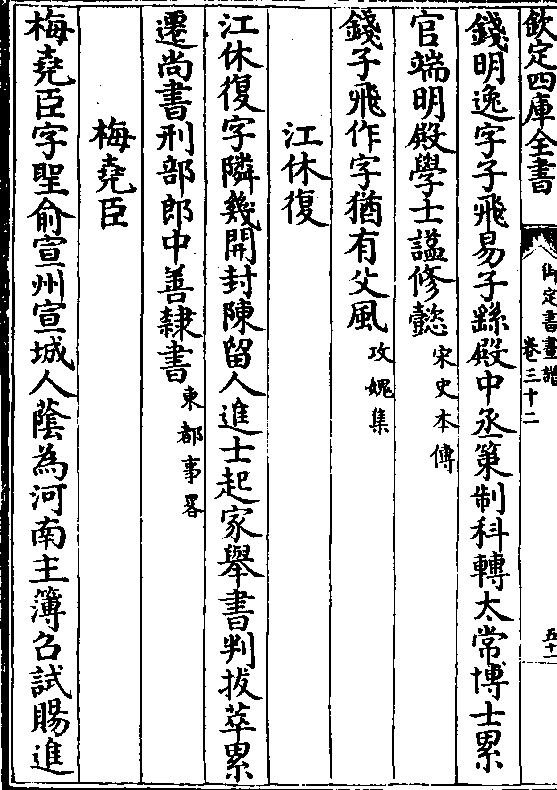 欽定四庫全書
御定書畫譜
卷三十二
五十一
錢明逸字子飛易子繇殿中丞策制科轉太常博士累
官端明殿學士謚修懿宋史本傳
錢子飛作字猶有父風攻媿集
江休復
江休復字隣幾開封陳留人進士起家舉書判拔萃累
遷尚書刑部郎中善隸書東都事畧
梅堯臣
梅堯臣字聖俞宣州宣城人蔭為河南主簿召試賜進